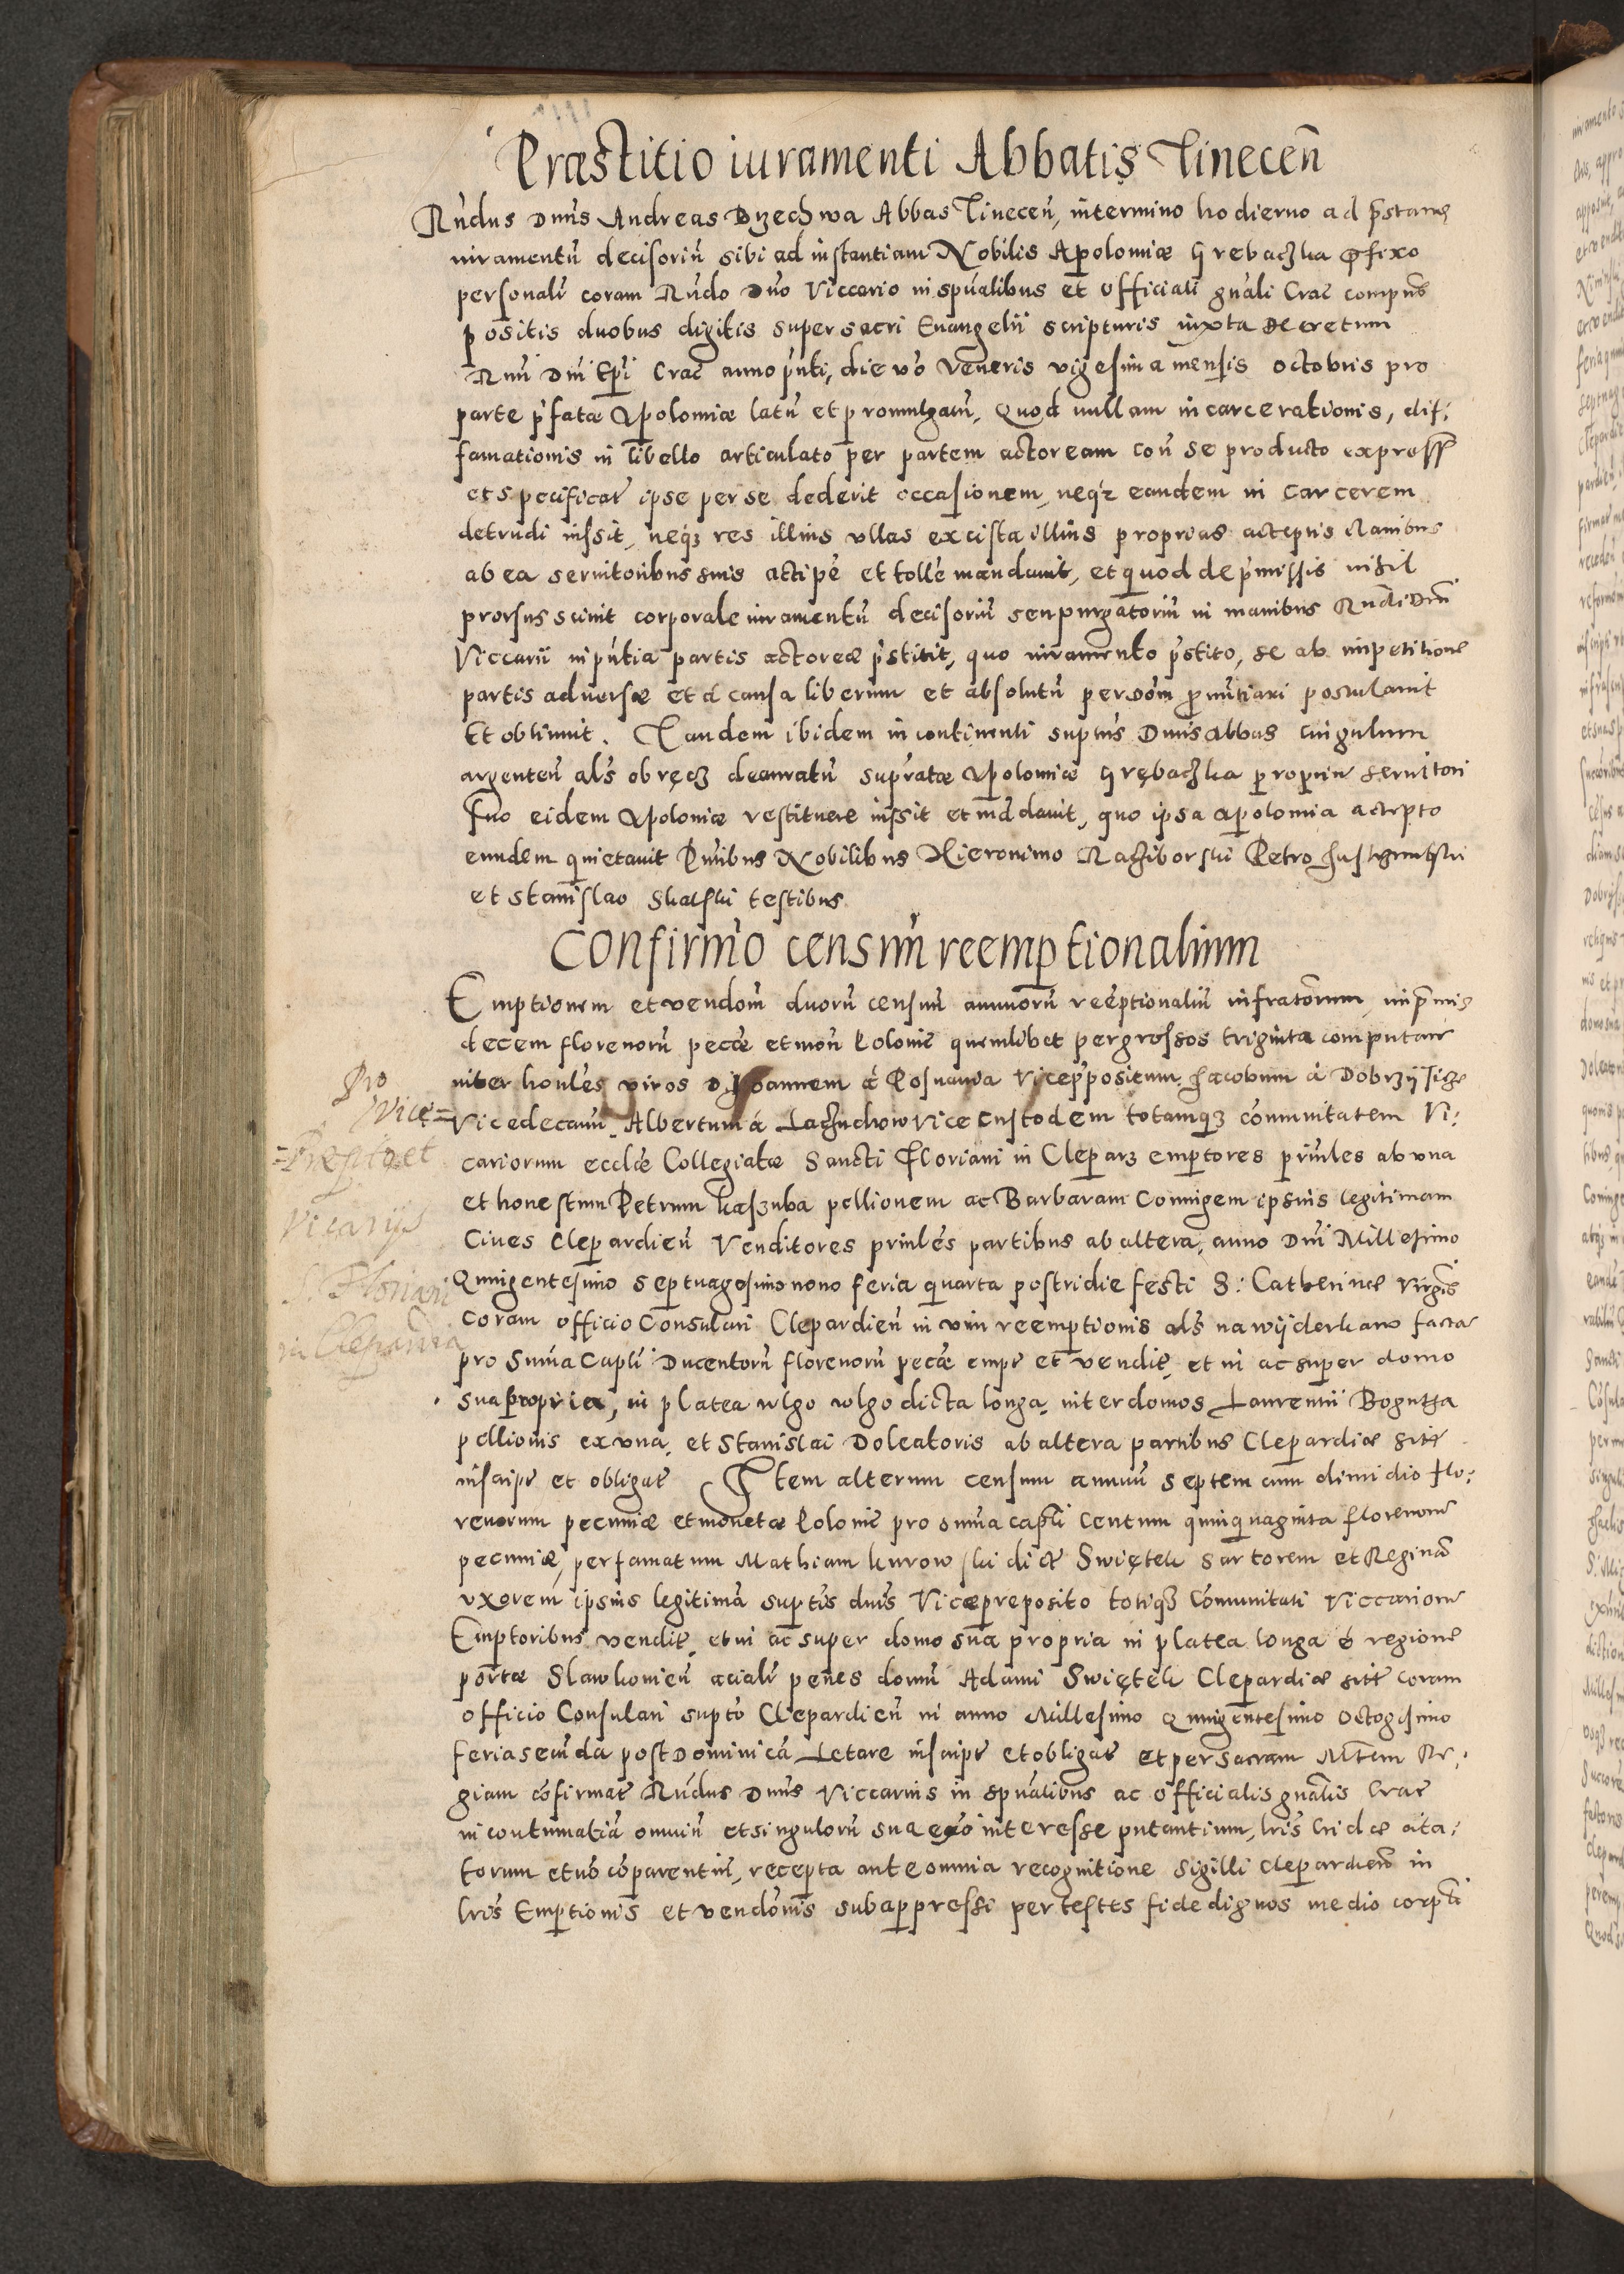 Præstitio iuramenti Abbatis Tinecen̄
Rn̄dus Dn̄us Andreas Brzechwa Abbas Tinecen̄, in termino hodierno ad p̄stand
iuramentū decisoriū sibi ad instantiam Nobilis Apoloniæ Grebaczka p̄fixo
personalr̄ coram Rn̄do Dn̄o Viccario in spūalibus et officiali gn̄ali Crac̄ compn̄s
positis duobus digitis super sacri Euangelii scripturis iuxta decretum
Rmi Dn̄i Ep̄i Crac̄ anno pn̄ti, die vō Veneris vigesima mensis octobris pro
parte p̄fatæ Apoloniæ latū et promulgatū, Quod nullam incarcerationis, dif:
famationis in libello articulato per partem actoream con̄ se producto express̄
et specificat̄ ipse per se dederit occasionem, neqz eandem in carcerem
detrudi iussit, neqz res illius vllas ex cista illius proprias acceptis clauibus
ab ea seruitoribus suis accipē et tollē mandauit, et quod de p̄missis nihil
prorsus sciuit corporale iuramentū decisoriū seu purgatoriū in manibus Rn̄di Dn̄i
Viccarii in pn̄tia partis actoreæ p̄stitit, quo iuramento p̄stito, se ab impetitione
partis aduersæ et à causa liberum et absolutū per dōm p̄nūtiari postulauit
Et obtinuit. Tandem ibidem in continenti suptus Dn̄us Abbas cingulum
argenteū als̄ obręcz deauratū suprātæ Apoloniæ Grębaczka per seruitori
suo eidem Apoloniæ restituere iussit et mādauit, quo ipsa Apolonia accepto
eundem quietauit Pn̄tibus Nobilibus Hieronimo Raciborski Petro
et Stanislao Skalski testibus
Confirmō censuū reemptionalium
Emptionem et vendōm duorū censuū annuorū reēptionaliū infratōrum, inp̄mis
decem florenorū pecæ et mon̄ Poloniē quemlibet per grossos triginta computan̄
inter honles̄ viros D Joannem á Posnania Vicep̄positum Jacobum á
Vicedecanū Albertum á Lachowice Custodem totamqz cōmunitatem Vi:
cariorum ecclæ Collegiatæ Sancti Floriani in Cleparz emptores prin̄les ab vna
et honestum Petrum Kaszuba pellionem ac Barbaram Coniugem ipsius legitimam
Ciues Clepardien̄ Venditores prinlēs partibus ab altera, anno Dn̄i Millesimo
Quingentesimo Septuagesimo nono feria quarta postridie festi S: Catherinæ Virgis
Coram officio Consulari Clepardien̄ in vim reemptionis als̄ na wijderkaw facta
pro Sum̄a Caplī Ducentorū florenorū pecæ empt̄ et vendit̄, et in ac super domo
sua propria, in platea vlgo vlgo dicta longa, inter domos Laurentii Bogutta
pellionis ex vna, et Stanislai Doleatoris ab altera partibus Clepardiæ sitt̄
inscript̄ et obligat̄ Item alterum censum annuū septem cum dimidio flo:
renorum pecuniæ et monetæ Poloniē pro sum̄a caplī Centum quinquaginta florenorū
pecuniæ, per famatum Mathiam Kurowski dict̄ Swiętek sartorem et Reginā
vxorem ipsius legitimā suptis̄ dn̄is Vicæpreposito totiqz Cōmunitati Viccariorū
Emptoribus vendit̄, et in ac super domo sua propria in platea longa è regione
portæ Slawkouien̄ acialr̄ penes domū Adami Swiętek Clepardiæ sitt̄ coram
officio Consulari suptō Clepardien̄ in anno Millesimo Quingentesimo Octogesimo
feria secūda post Dominicā Letare inscript̄ et obligat̄ et per Sacram Mtem Re:
giam cōfirmat̄ Rn̄dus Dn̄us Viccarius in spūalibus ac officialis gn̄alis Crac̄
in contumatiā omniū et singulorū sua eo interesse putantium, lris̄ hic dæ cita:
torum et nō cōparentiū, recepta ante omnia recognitione Sigilli Clepardien̄ in
lris̄ Emptionis et vendōnis subappressi per testes fide dignos medio corpli
Pro
Vice=
=Prepito et
Vicarijs
S. Floriani
in Clepardia